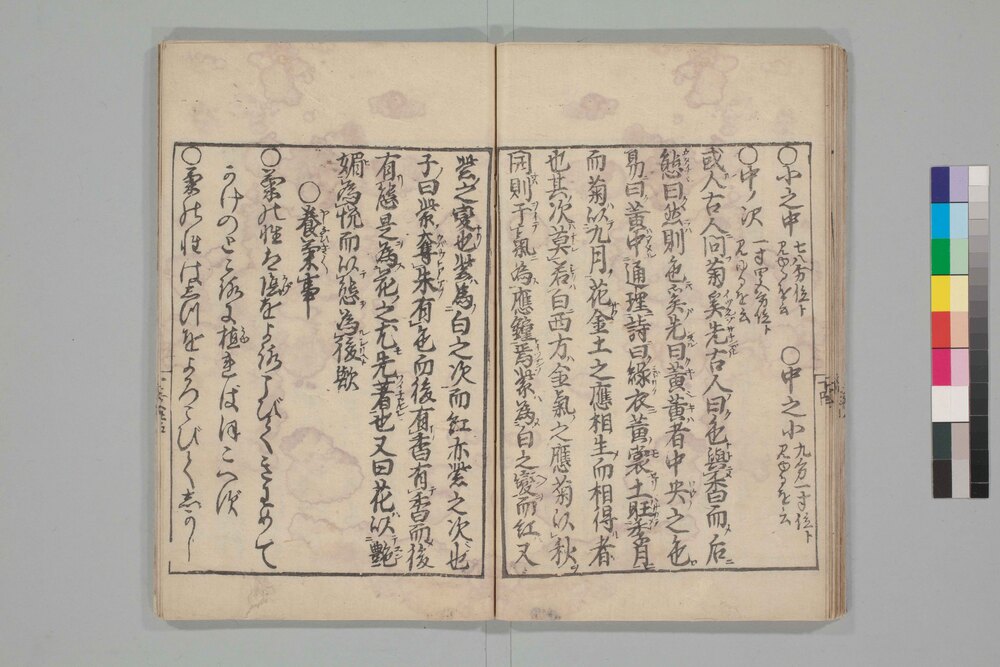 ○小之中 七八分位ト見ゆるを云 ○中之小 九分一寸位ト見ゆるを云
○中ノ次 一寸四五分位ト見ゆるを云
或人古人問菊奚先古人曰色與香而后
態曰然則色奚先曰黄黄者中央之色
易曰黄中通理詩曰緑衣黄裳土旺季月
而菊以九月花金土之應相生而相得者
也其次莫若白西方金氣之應菊以秋
開則于氣為應鐘焉紫為白之變而紅又
紫之變也紫為白之次而紅亦紫之次也
子曰紫奪朱有色而後有香有香而後
有態是為花之尤先著也又曰花以艶
媚為悦而以態為後歟
○養菊事
○菊の性は陰をよろこびてくきをめて
かけのところに植ればほこへず
○菊の性はしつをよろこびてしかり